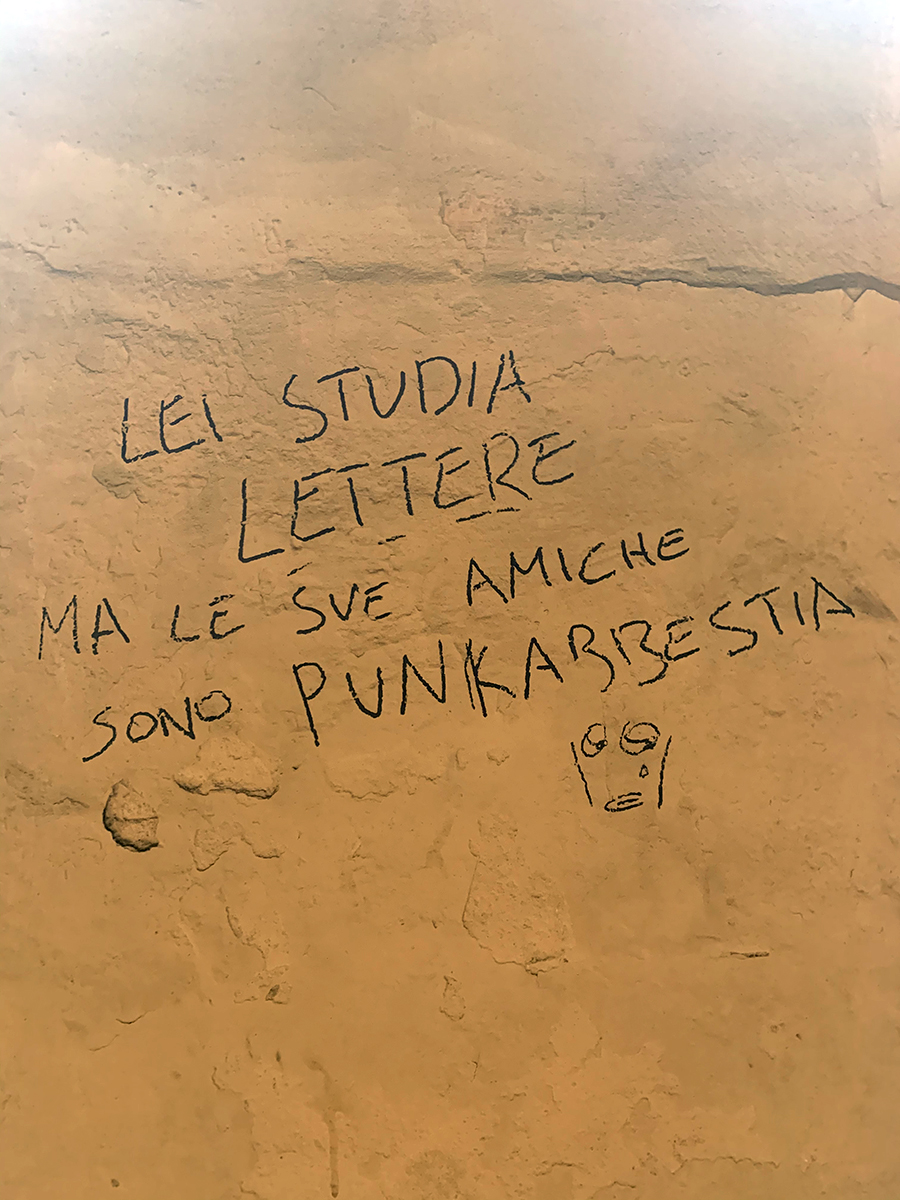 LEI STUDIA
LETTERE
MA LE SUE AMICHE
SONO PUNKABBESTIA